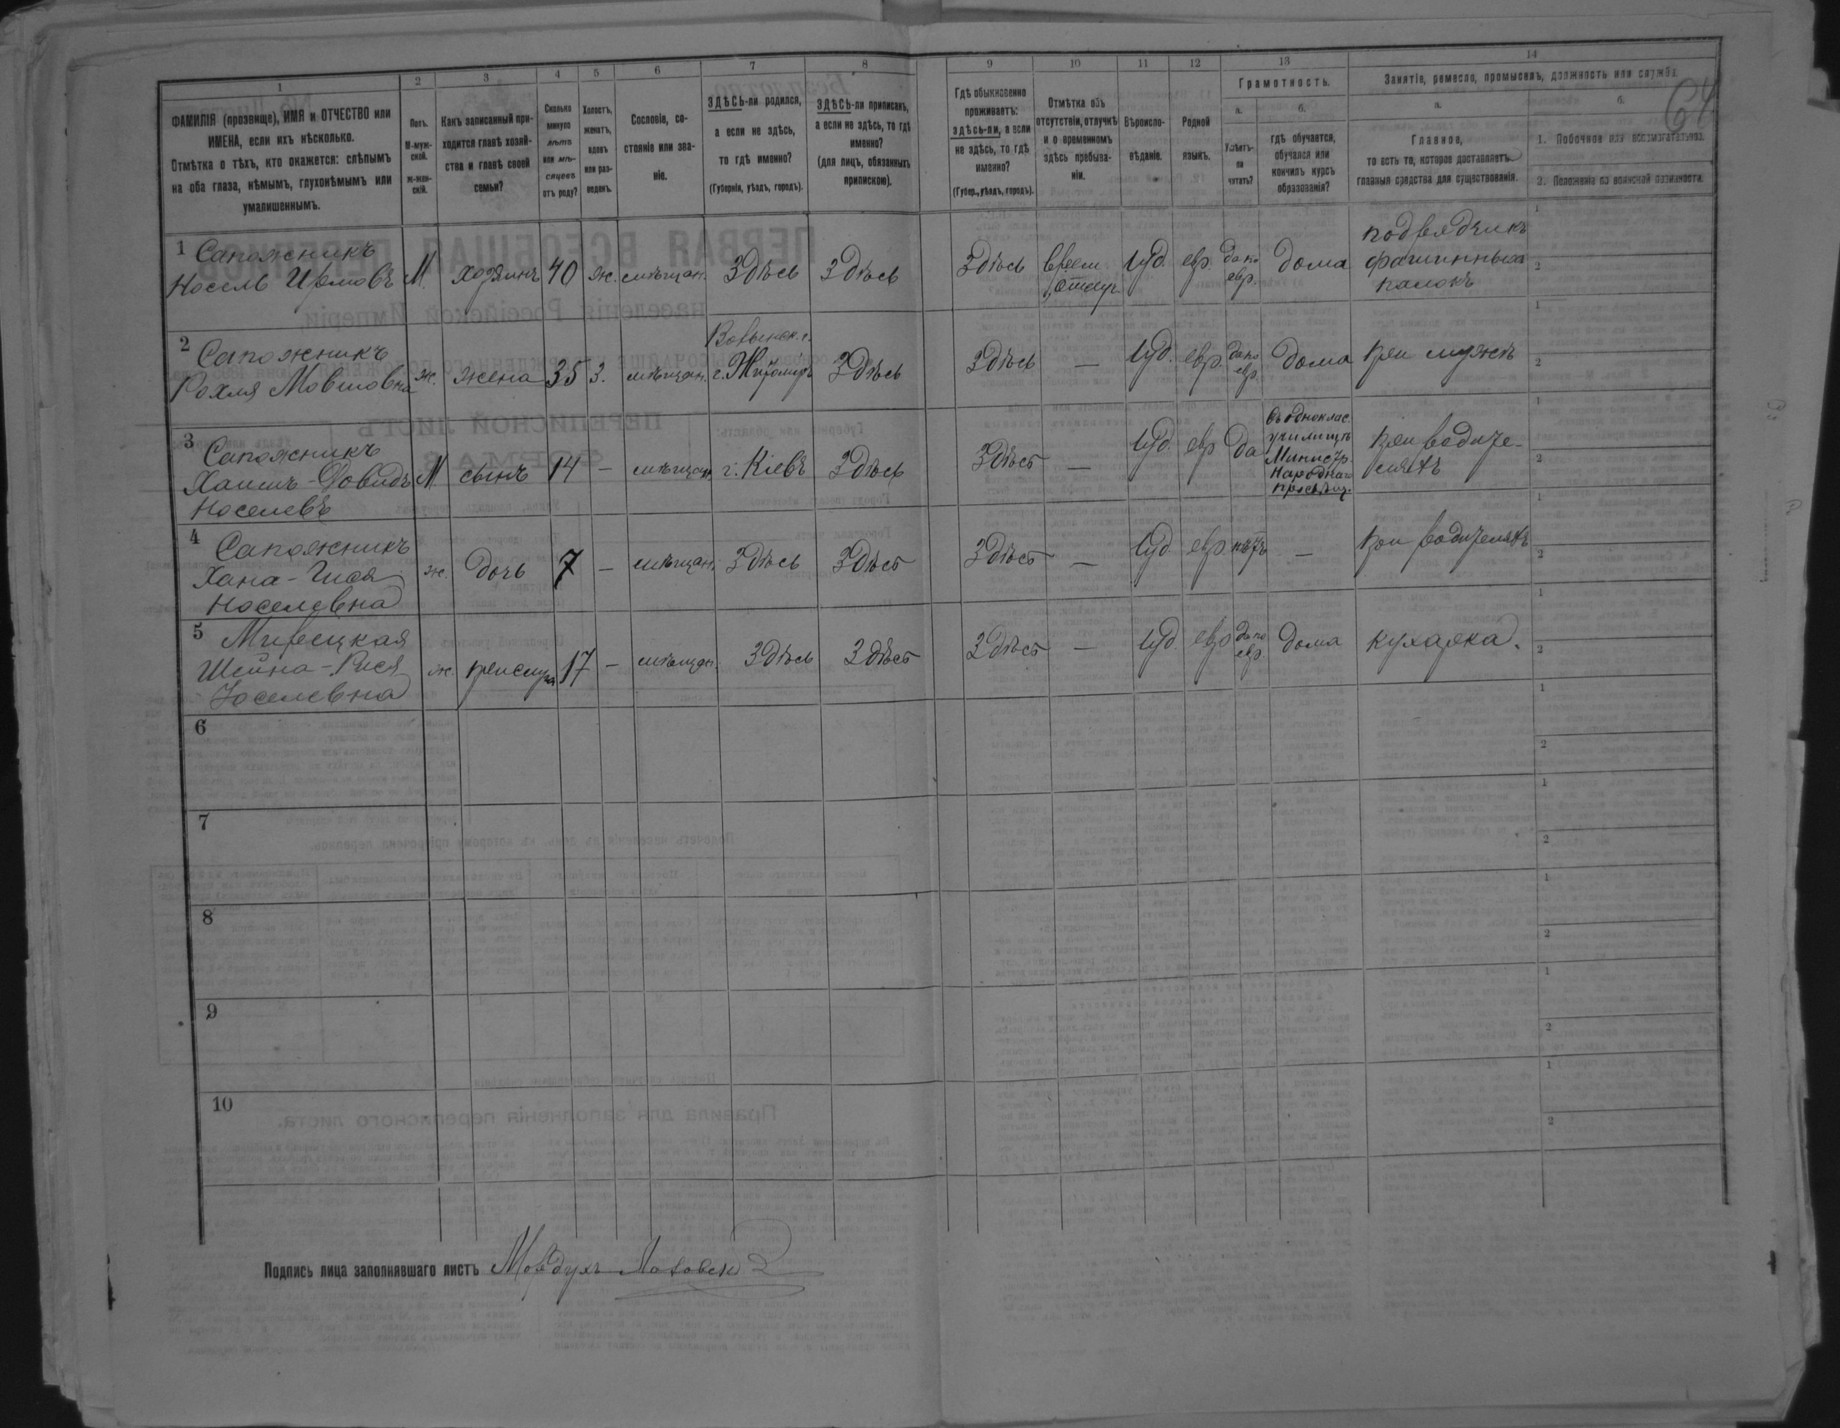 1 2 3 4 5 6 7 8 9 10 11 12 13 14
64
ФАМИЛІЯ (прозвище), ИМЯ и ОТЧЕСТВО или
ИМЕНА, если ихъ нѣсколько.
Отмѣтка о тѣхъ, кто окажется: слѣпымъ
на оба глаза, нѣмымъ, глухонѣмымъ или
умалишеннымъ.
Полъ.
М-муж-
ской.
ж-жен-
скій.
Какъ записанный при-
ходится главѣ хозяй-
ства и главѣ своей
семьи?
Сколько
минуло
лѣтъ
или мѣ-
сяцевъ
отъ роду?
Холостъ,
женатъ,
вдовъ
или раз-
веденъ.
Сословіе, со-
стояніе или зва-
ніе.
ЗДѢСЬ-ли родился,
а если не здѣсь,
то гдѣ именно?
(Губернія, уѣздъ, городъ).
ЗДѢСЬ-ли приписанъ,
а если не здѣсь, то гдѣ
именно?
(для лицъ, обязанныхъ
припискою).
Гдѣ обыкновенно
проживаетъ:
здѣсь-ли, а если
не здѣсь, то гдѣ
именно?
(Губер., уѣздъ, городъ).
Отмѣтка объ
отсутствіи, отлучкѣ
и о временномъ
здѣсь пребыва-
ніи.
Вѣроиспо-
вѣданіе.
Родной
языкъ.
Грамотность.
а.
Умѣетъ-
ли
читать?
б.
гдѣ обучается,
обучался или
кончилъ курсъ
образованія?
Занятіе, ремесло, промыселъ, должность или служба.
а.
Главное,
то есть то, которое доставляетъ
главныя средства для существованія.
б.
1. Побочное или вспомогательное.
2. Положеніе по воинской повинности.
1 Сапожникъ
Носель Ирмовъ М. хозяинъ 40 ж. мѣщан. Здѣсь Здѣсь Здѣсь времен. отлуч. Іуд. евр. да по евр. дома подрядчикъ
2 Сапожникъ
Рохля Мовшовна ж. жена 35 з. мѣщан. Волынск. г. г. Житомиръ Здѣсь Здѣсь — Іуд. евр. да по евр. дома при мужѣ
3 Сапожникъ
Хаимъ-Довидъ М. сынъ 14 — мѣщан. г. Кіевъ Здѣсь Здѣсь — Іуд. евр да Въ одноклас. училищѣ Минист. Народнаго просвѣщ. при родите-
Носелевъ
ляхъ
4 Сапожникъ
Хана-Гися ж. дочь 7 — мѣщан. Здѣсь Здѣсь Здѣсь — Іуд евр нѣтъ — при родителяхъ
Носелевна
5 Мирецкая
Шейна-Рися ж. прислуга 17 — мѣщан. Здѣсь Здѣсь Здѣсь — Іуд евр да по евр. дома кухарка.
Іоселевна
6
7
8
9
10
Подпись лица заполнявшаго листъ Мордухъ